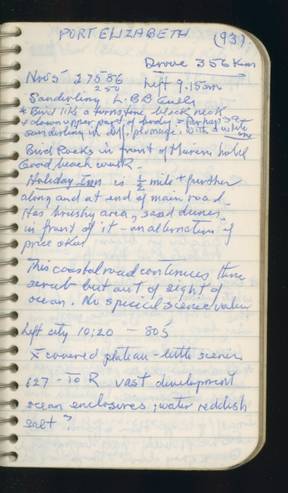 PORT ELIZABETH (93)
Drove 356 km
Nov 5 27586 Left 9.15am
250
Sanderling L.BB Gulls
* Bird like a turnstone black neck
& down upper part of body
sanderling in diff. plumage. with
Bird Rocks in front of Marine hotel
Good beach walk.
Holiday Inn is ½ mile + further
along and at end of main road.
Has brushy area, sand dunes
in front of it - an alternative if
price okay
This coastal road continues thru
scrub but out of sight of
ocean. No special scenic value
Left city 10:20 - 805
covered plateau - little scenic
627 - To R vast development
ocean enclosures; water reddish
salt?